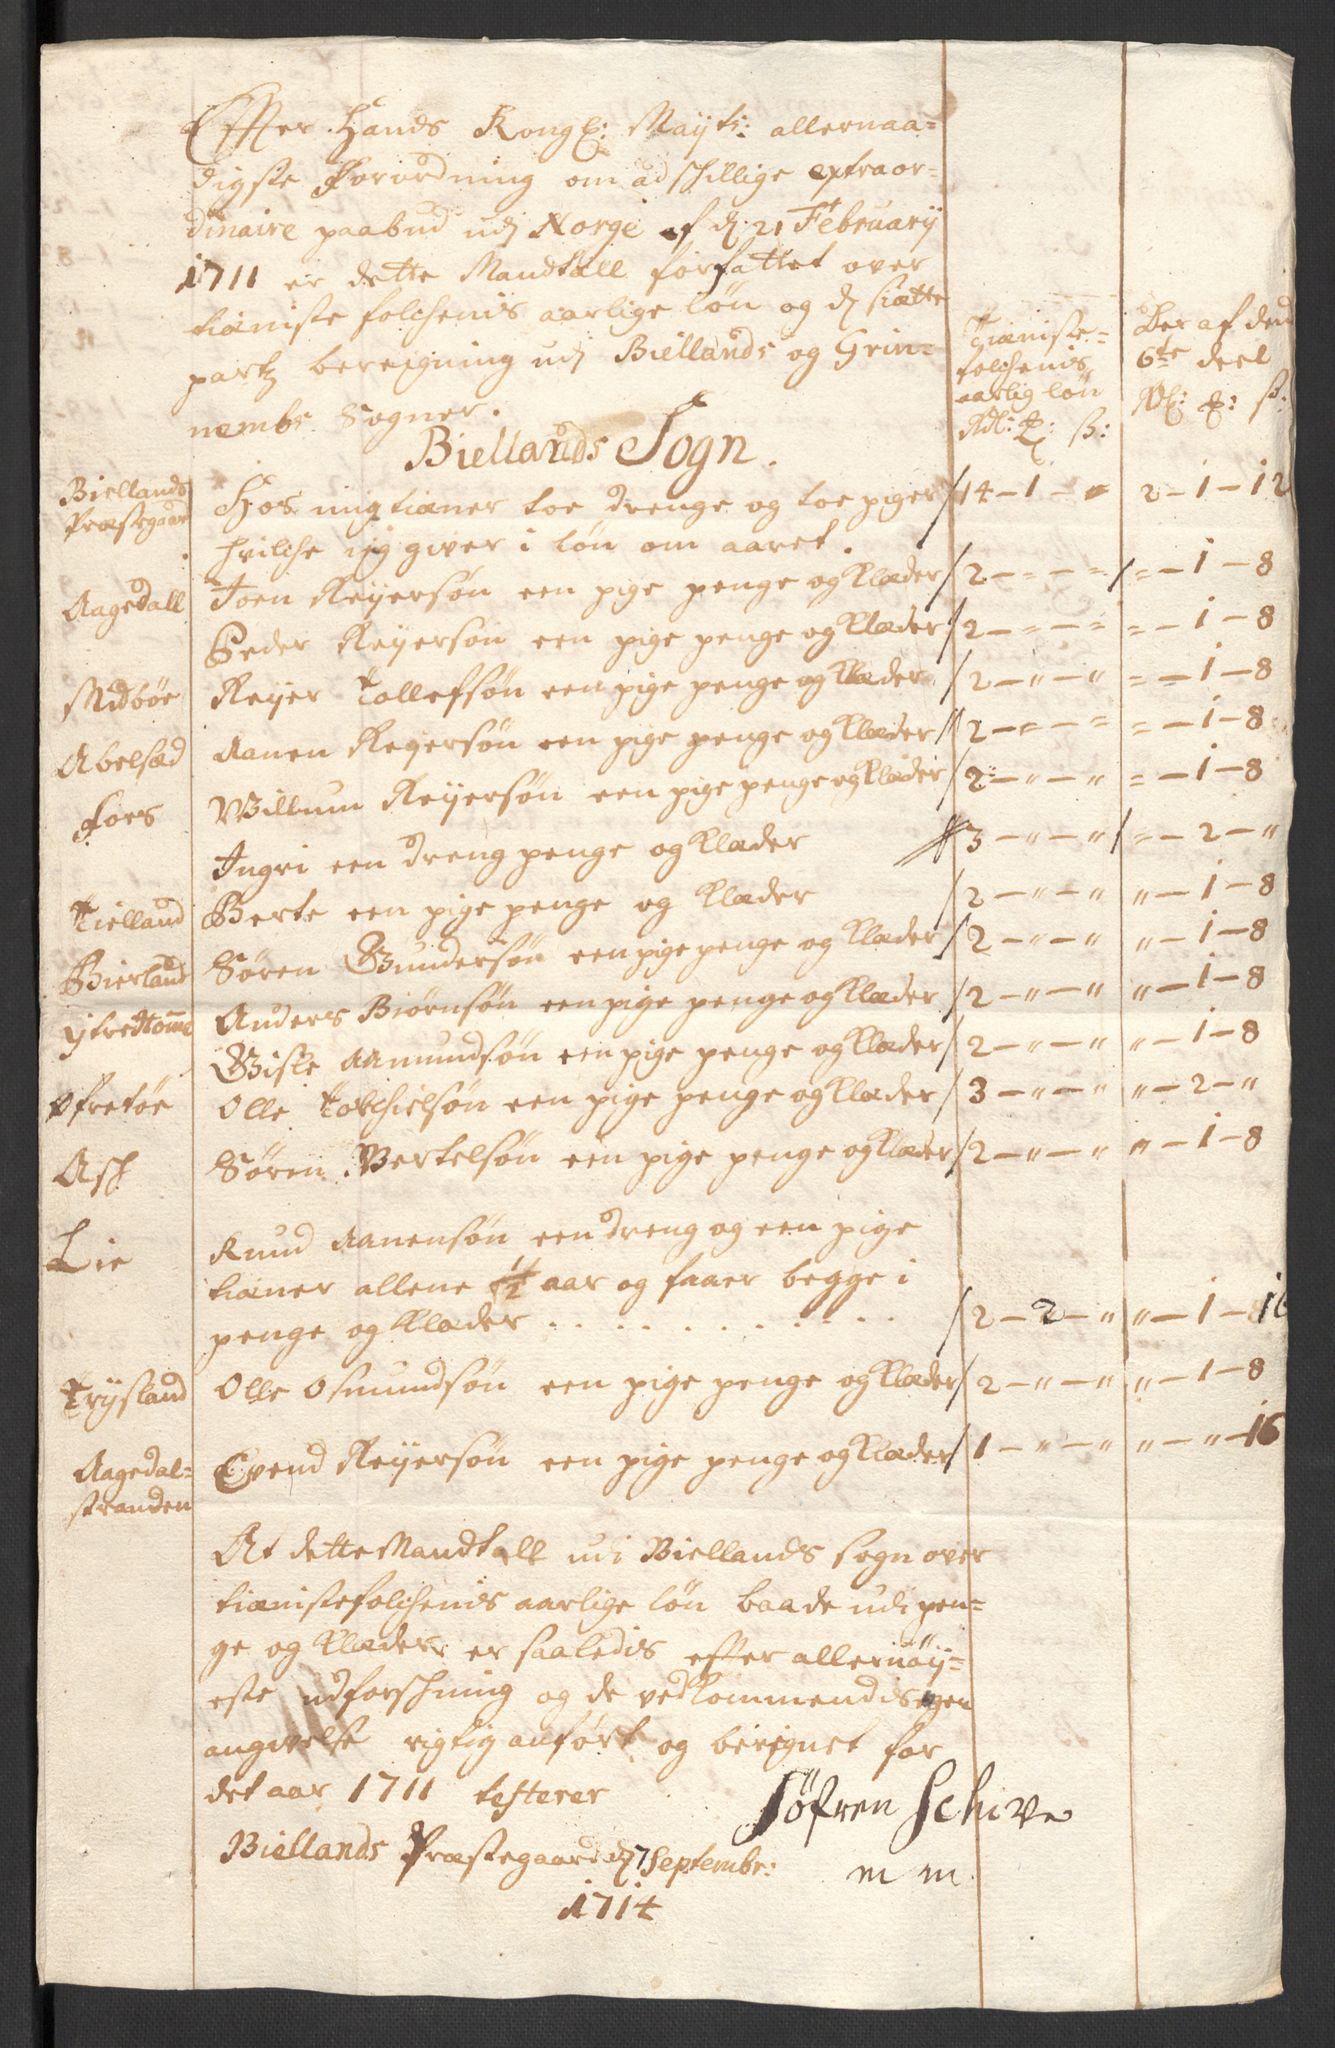 Effter Hands Kongl: Mayts: allernaa=
digste Forordning om adschillige extraor=
dinaire paabud udj Norge af dj 21 February
1711 er dette Mandtall forfattet over
tieniste folchenis aarlige løn og dj siætte
partz beregning udj Biellands og Grin=
nembs Sogner.
Tieniste=
folchenis
aarlig løn
Rdl: ß:
Der af dend
6te deel
Rdl: ß:
Biellands Sogn.
Biellands Præstegaard Hos mig tiener toe drenge og toe piger / 14 – 1 – " 2 – 1 – 12
hvilche ieg giver i løn om aaret.
Aagedall Joen Reijersøn een pige penge og Klæder / 2 – " – " / = – 1 – 8
Peder Reijersøn een pige penge og Klæder / 2 – " – " = – 1 – 8
Midbøe Reijer Tollefsøn een pige penge og Klæder / 2 – " – " = – 1 – 8
Abelsæd Aanen Reijersøn een pige penge og Klæder / 2 – " – " = – 1 – 8
Foss Willum Reijersøn een pige penge og Klæder / 2 – " – " = – 1 – 8
Ingri een dreng penge og Klæder / 3 – " – " / = – 2 – "
Tielland Berte een pige penge og Klæder / 2 – " – " " – 1 – 8
Bierland Søren Gundersøn een pige penge og Klæder / 2 – " – " " – 1 – 8
Anders Biørnsøn een pige penge og Klæder / 2 – " – " " – 1 – 8
Giste Aamundsøn een pige penge og Klæder / 2 – " – " " – 1 – 8
Øfretøe Olle Torchielsøn een pige penge og Klæder / 3 – " – " " – 2 – "
Ash Søren Bertelsøn een pige penge og Klæder / 2 – " – " " – 1 – 8
Lie Knud Aanensøn een dreng og een pige
tiener allene 1/2 aar og faaer begge i
penge og Klæder . . . . . . . . . . / 2 – 2 – " " – 1 – 16
Trysland Olle Osmundsøn een pige penge og Klæder / 2 – " – " " – 1 – 8
Aagedal=
stranden Evend Reijersøn een pige penge og Klæder / 1 – " – " " – " – 16
At dette Mandtall udi Biellands sogn over
tienistefolchenis aarlige løn baade udi pen=
ge og Klæder er saaledis effter allernøij=
este udforschning og de vedkommendis egen
angivelse rigtig anført og beregnet for
det aar 1711 testerer
Søfren Schive
Biellands Præstegaard dj 7 Septembr: m m.
1714